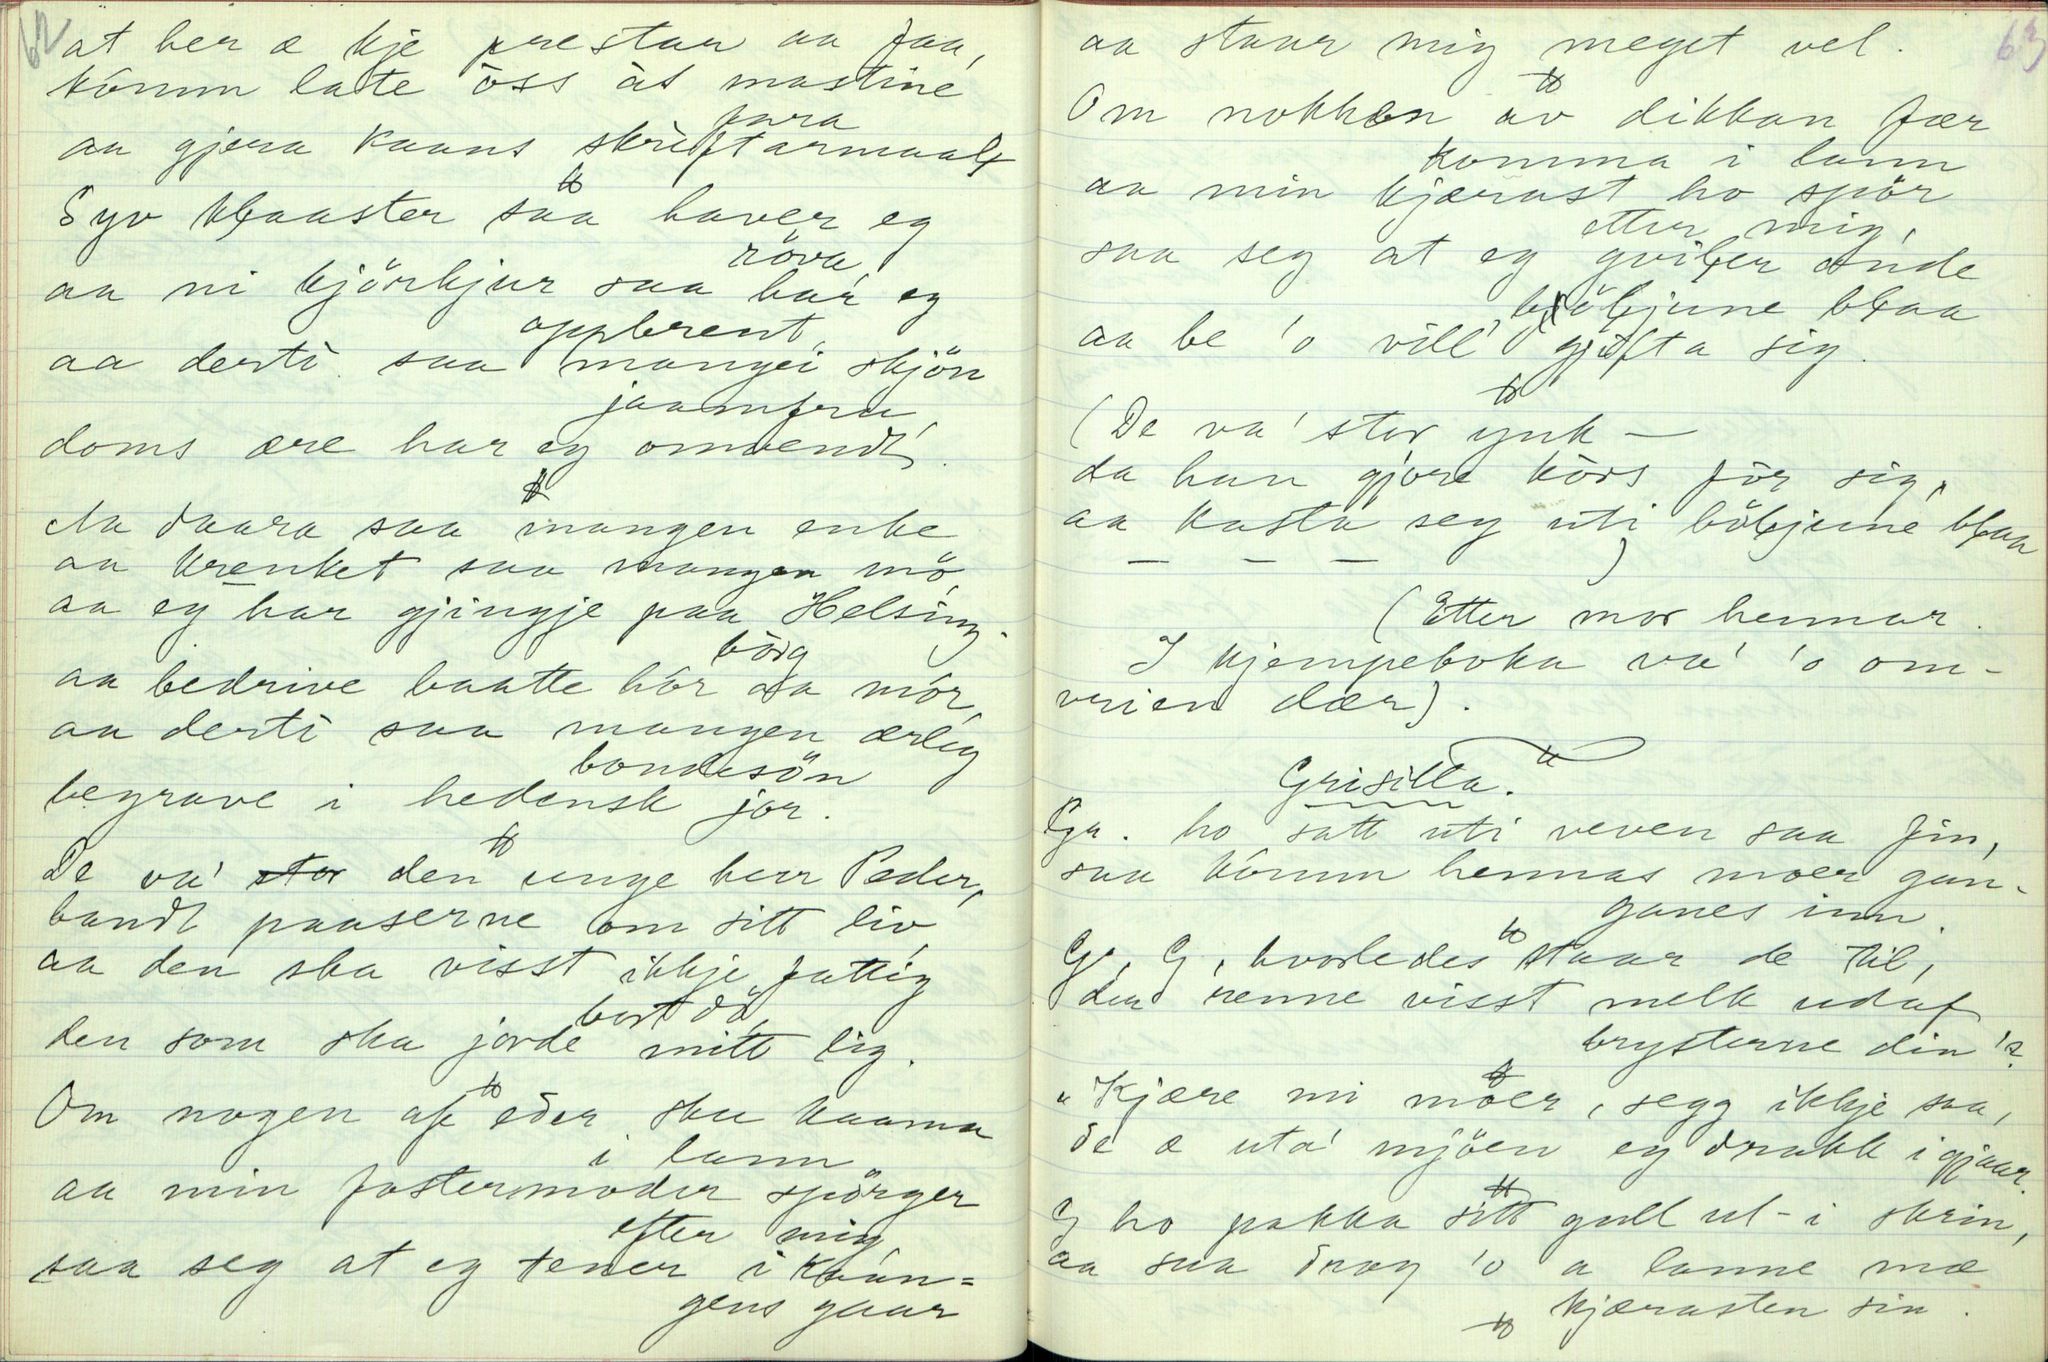 62
at her æ kje prestar aa faa,
kómm late óss åt mastine
fara
aa gjera kaans skriftarmaal
Syv klaaster saa haver eg
röva,
aa ni kjörkjur saa har eg
oppbrent,
aa derti saa mangei skjön
jaamfru
doms ære har eg omvendt.
Aa daara saa mangen enke
aa krenket saa mangen mö,
aa eg har gjingje paa Helsing-
börg
aa bedrive baatte hór aa mór,
aa derti saa mangen ærlig
bondesön
begrave i hedensk jor.
De va' den unge herr Peder,
bandt paaserne om sitt liv,
aa den ska visst ikkje fattig
bort dö,
den som ska jorde mitt lig.
Om nogen af eder sku kaama
i lann
aa min fostermoder spörger
efter mig
saa seg at eg tener i kaan=
gens gaar
63
aa staar mig meget vel.
Om nokken av dikkan fær
komma i lann
aa min kjærast ho spör
etter mig,
saa seg at eg gviler onde
böljune blaa
aa be 'o vill' gjifta sig.
(De va' stor ynk —
da han gjore kórs fór sig,
aa kasta seg uti böljune blaa
— — — )
(Etter mor hennar.
I kjempeboka va' 'o om-
vrien dær).
Grisilla.
Gr. ho satt uti veven saa fin,
saa kómm hennas moer gan-
ganes inn.
G, G, hvorledes staar de til,
der renne visst melk udaf
brysterne din'?
"Kjære mi móer, segg ikkje saa,
de æ uta' mjöen eg drakk igjaar.
G ho pakka sitt gull ut-i skrin,
aa saa drog 'o a lanne mæ
kjærasten sin.